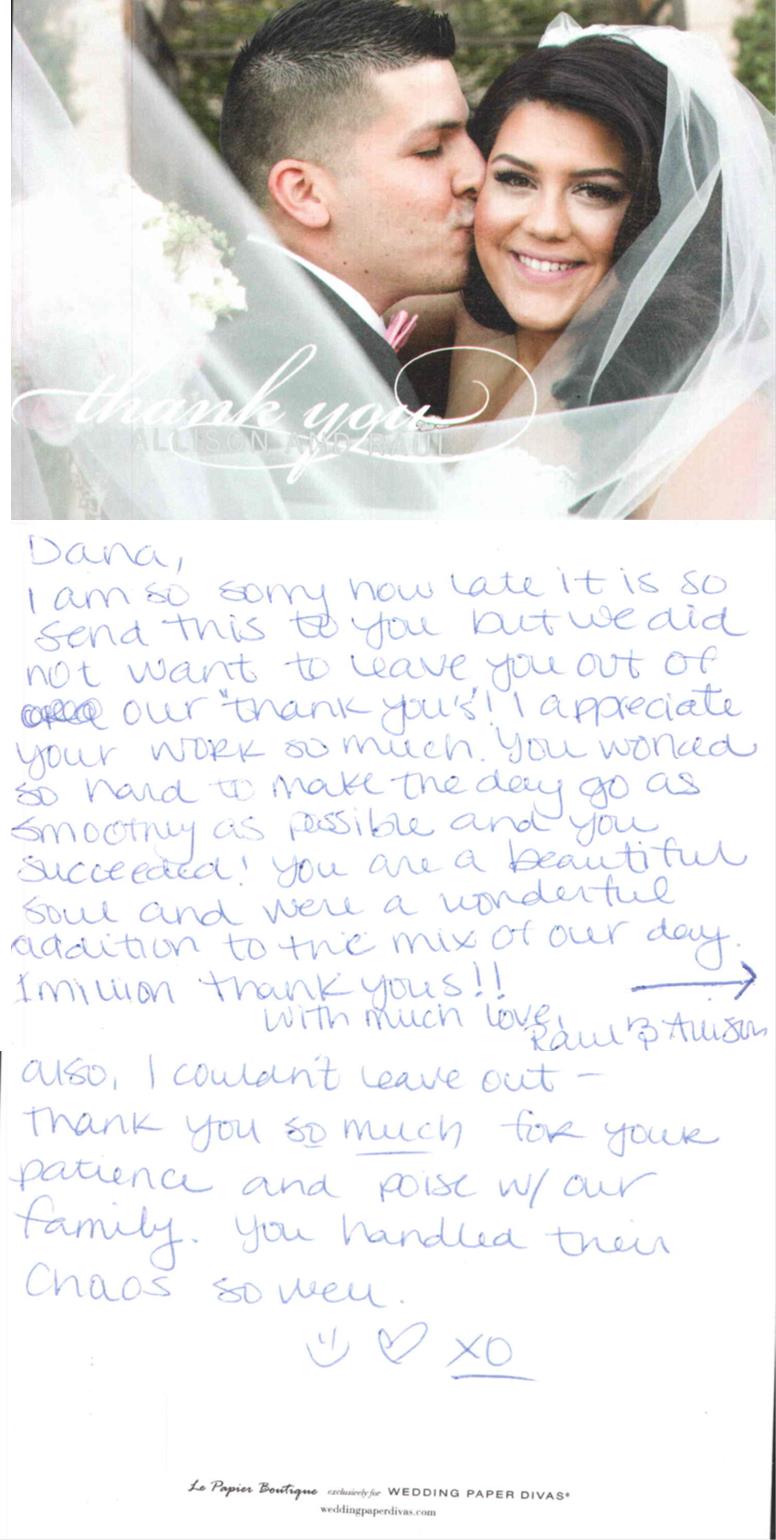 thank you
ALLISON AND RAUL
Dana,
I am so sorry how late it is so
send this to you but we did
not want to leave you out of
our "thank you's"! I appreciate
your work so much. You worked
so hard to make the day go as
smoothly as possible and you
succeeded! You are a beautiful
soul and were a wonderful
addition to the mix of our day.
1 million thank yous!!
With much love,
Raul & Allison
also, I couldn't leave out -
thank you so much for your
patience and poise w/ our
family. You handled their
chaos so well.
XO
Le Papier Boutique exclusively for WEDDING PAPER DIVAS®
weddingpaperdivas.com